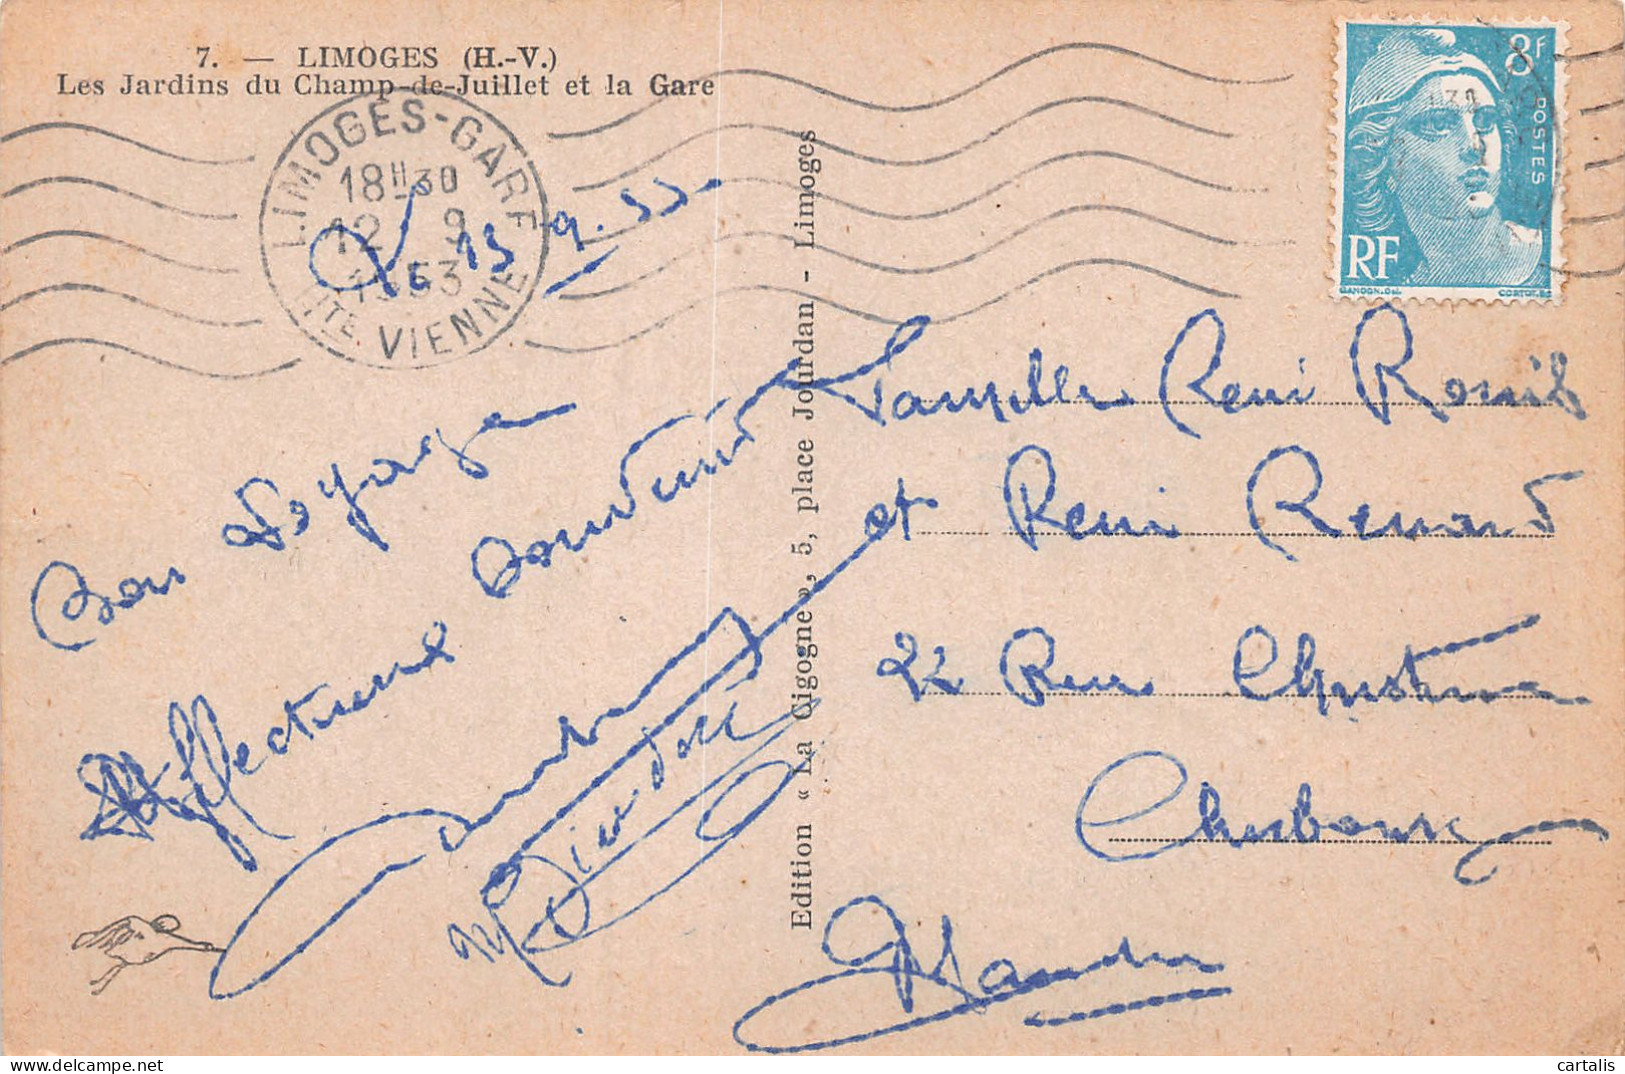 7. — LIMOGES (H.-V.)
Les Jardins du Champ-de-Juillet et la Gare
LIMOGES-GARE
18H30
12 9
1953
HTE VIENNE
8F
POSTES
RF
GANDON.Del.
Le 13.9.53.
Bon Voyage
Affectueux
Edition « La Cigogne », 5, place Jourdan - Limoges
Famille René
et René Renard
22 Rue Christine
Cherbourg
Manche
cartalis